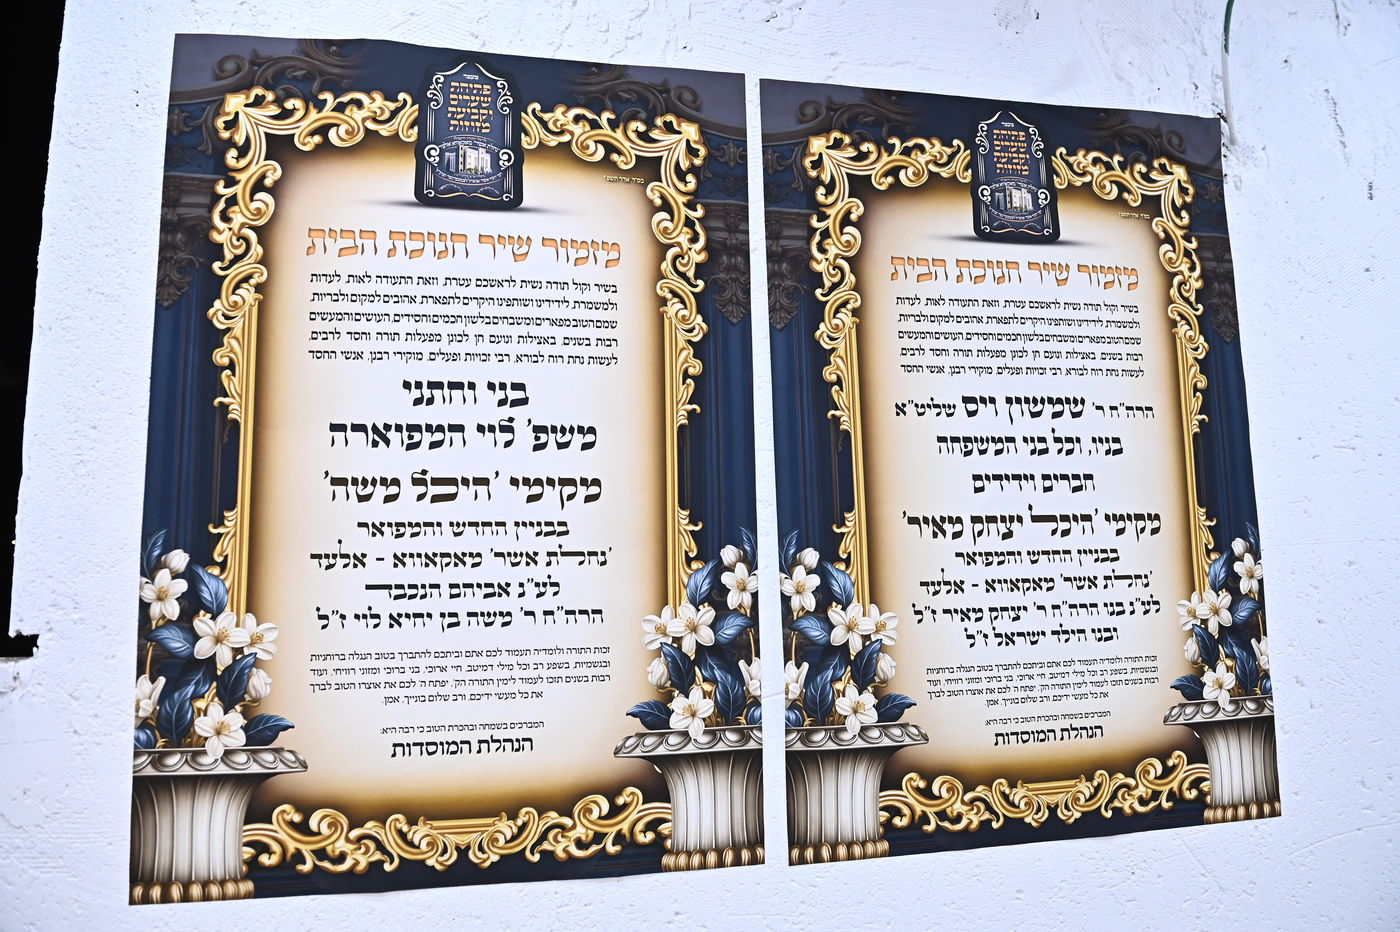 מעמד
פתיחת
שערים
וקביעת
מזוזות
בס״ד, אדר תשפ״ו
מזמור שיר חנוכת הבית
בשיר וקול תודה נשית לראשכם עטרת, וזאת התעודה לאות, לעדות
ולמשמרת, לידידינו ושותפינו היקרים לתפארת, אהובים למקום ולבריות,
שמם הטוב מפארים ומשבחים בלשון חכמים וחסידים, העושים והמעשים
רבות בשנים, באצילות ונועם חן לכונן מפעלות תורה וחסד לרבים,
לעשות נחת רוח לבורא, רבי זכויות ופעלים, מוקירי רבנן, אנשי החסד
בני וחתני
משפ׳ לוי המפוארה
מקימי ׳היכל משה׳
בבניין החדש והמפואר
׳נחלת אשר׳ מאקאווא - אלעד
לע״נ אביהם הנכבד
הרה״ח ר׳ משה בן יחיא לוי ז״ל
זכות התורה ולומדיה תעמוד לכם אתם וביתכם להתברך בטוב הנגלה ברוחניות
ובגשמיות, בשפע רב וכל מילי דמיטב, חיי ארוכי, בני ברוכי ומזוני רוויחי, ועוד
רבות בשנים תזכו לעמוד לימין התורה הק׳, יפתח ה׳ לכם את אוצרו הטוב לברך
את כל מעשי ידיכם, ורב שלום בנייך, אמן.
המברכים בשמחה ובהכרת הטוב כי רבה היא:
הנהלת המוסדות
מעמד
פתיחת
שערים
וקביעת
מזוזות
בס״ד, אדר תשפ״ו
מזמור שיר חנוכת הבית
בשיר וקול תודה נשית לראשכם עטרת, וזאת התעודה לאות, לעדות
ולמשמרת, לידידינו ושותפינו היקרים לתפארת, אהובים למקום ולבריות,
שמם הטוב מפארים ומשבחים בלשון חכמים וחסידים, העושים והמעשים
רבות בשנים, באצילות ונועם חן לכונן מפעלות תורה וחסד לרבים,
לעשות נחת רוח לבורא, רבי זכויות ופעלים, מוקירי רבנן, אנשי החסד
הרה״ח ר׳ שמשון ויס שליט״א
בניו, וכל בני המשפחה
חברים וידידים
מקימי ׳היכל יצחק מאיר׳
בבניין החדש והמפואר
׳נחלת אשר׳ מאקאווא - אלעד
לע״נ בנו הרה״ח ר׳ יצחק מאיר ז״ל
ובנו הילד ישראל ז״ל
זכות התורה ולומדיה תעמוד לכם אתם וביתכם להתברך בטוב הנגלה ברוחניות
ובגשמיות, בשפע רב וכל מילי דמיטב, חיי ארוכי, בני ברוכי ומזוני רוויחי, ועוד
רבות בשנים תזכו לעמוד לימין התורה הק׳, יפתח ה׳ לכם את אוצרו הטוב לברך
את כל מעשי ידיכם, ורב שלום בנייך, אמן.
המברכים בשמחה ובהכרת הטוב כי רבה היא:
הנהלת המוסדות